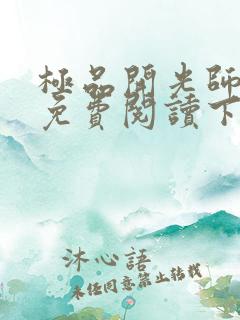 極品開光師
免費閱讀下
沐心語
未經同意禁止轉載